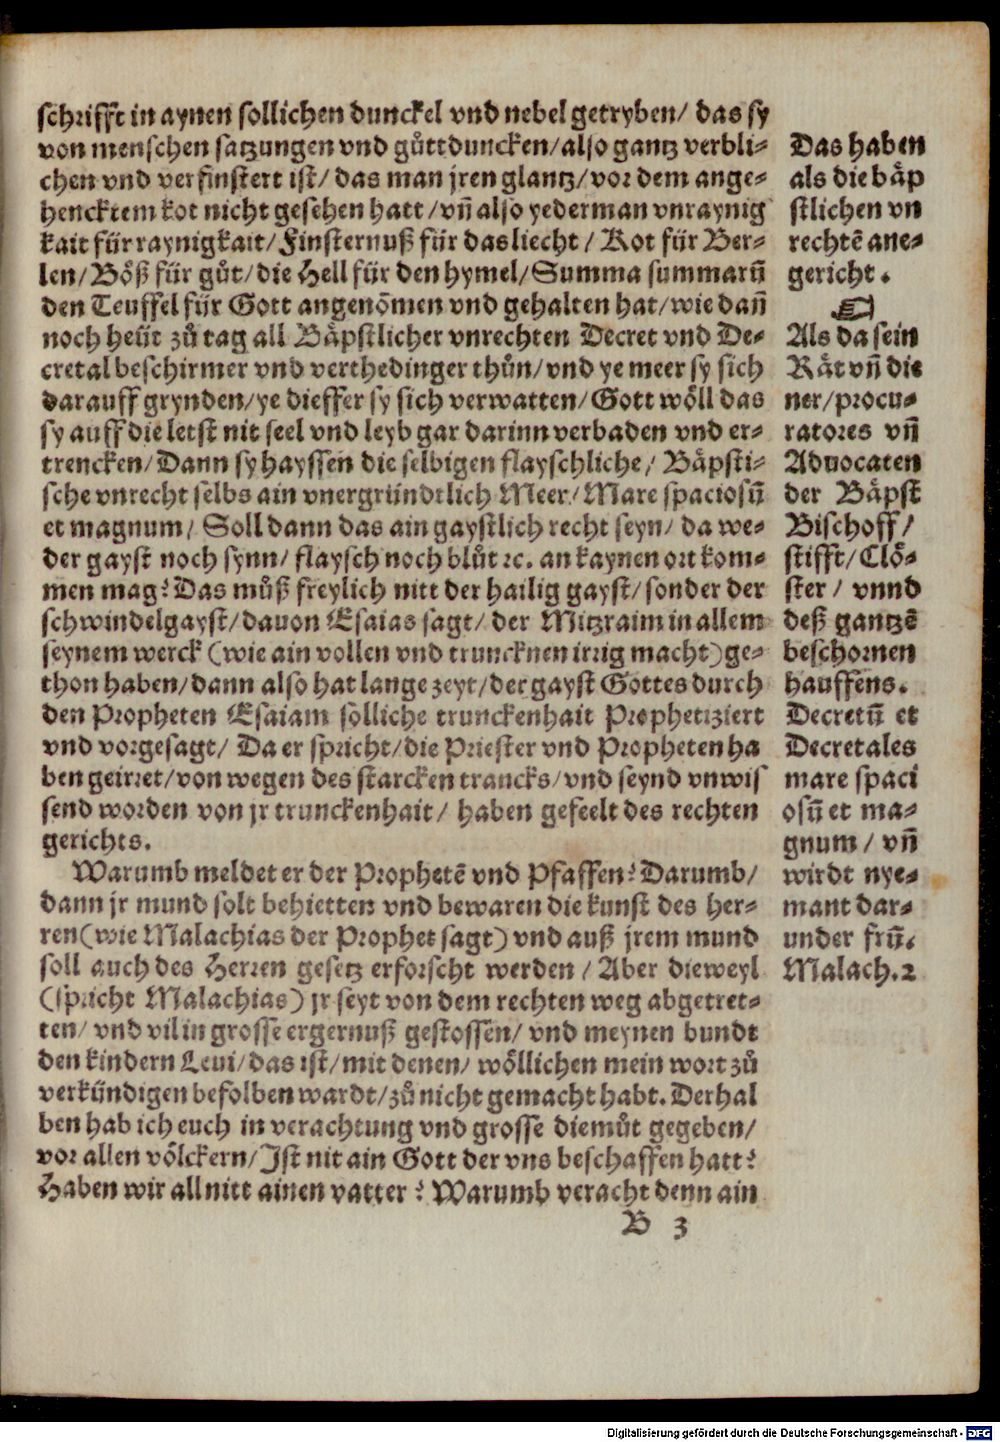 schrifft in aynen sollichen dunckel vnd nebel getryben/ das sy
von menschen satzungen vnd gůttduncken/also gantz verbli-
chen vnd verfinstert ist/ das man jren glantz/vor dem ange-
hencktem kot nicht gesehen hatt/vñ also yederman vnraynig
kait für raynigkait/Finsternuß für das liecht/ Kot für Ber-
len/Böß für gůt/die Hell für den hymel/Summa summarũ
den Teuffel für Gott angenõmen vnd gehalten hat/wie dañ
noch heüt zů tag all Bäpstlicher vnrechten Decret vnd De-
cretal beschirmer vnd verthedinger thůn/vnd ye meer sy sich
darauff grynden/ye dieffer sy sich verwatten/Gott wöll das
sy auff die letst nit seel vnd leyb gar darinn verbaden vnd er-
trencken/Dann sy hayssen die selbigen flayschliche/ Bäpsti-
sche vnrecht selbs ain vnergründtlich Meer/Mare spaciosũ
et magnum/ Soll dann das ain gaystlich recht seyn/ da we-
der gayst noch synn/ flaysch noch blůt ꝛc. an kaynen ort kom-
men mag? Das můß freylich nitt der hailig gayst/ sonder der
schwindelgayst/dauon Esaias sagt/ der Mitzraim in allem
seynem werck (wie ain vollen vnd truncknen irrig macht)ge-
thon haben/dann also hat lange zeyt/der gayst Gottes durch
den Propheten Esaiam solliche trunckenhait Prophetiziert
vnd vorgesagt/ Da er spricht/die Priester vnd Propheten ha
ben geirret/von wegen des starcken trancks/vnd seynd vnwis
send worden von jr trunckenhait/ haben gefeelt des rechten
gerichts.
Warumb meldet er der Prophetẽ vnd Pfaffen? Darumb/
dann jr mund solt behietten vnd bewaren die kunst des her-
ren(wie Malachias der Prophet sagt) vnd auß jrem mund
soll auch des Herren gesetz erforscht werden/ Aber dieweyl
(spricht Malachias) jr seyt von dem rechten weg abgetret-
ten/ vnd vil in grosse ergernuß gestossen/ vnd meynen bundt
den kindern Leui/das ist/mit denen/ wöllichen mein wort zů
verkündigen befolben wardt/zů nicht gemacht habt. Derhal
ben hab ich euch in verachtung vnd grosse diemůt gegeben/
vor allen völckern/Ist nit ain Gott der vns beschaffen hatt?
Haben wir all nitt ainen vatter? Warumb veracht denn ain
B 3
Das haben
als die bäp
stlichen vn
rechtẽ ane-
gericht.
Als da sein
Rät vñ die
ner/procu-
ratores vñ
Aduocaten
der Bäpst
Bischoff/
stifft/Clö-
ster/ vnnd
deß gantzẽ
beschornen
hauffens.
Decretũ et
Decretales
mare spaci
osũ et ma-
gnum/ vñ
wirdt nye-
mant dar-
under frũ.
Malach.2
Digitalisierung gefördert durch die Deutsche Forschungsgemeinschaft - DFG